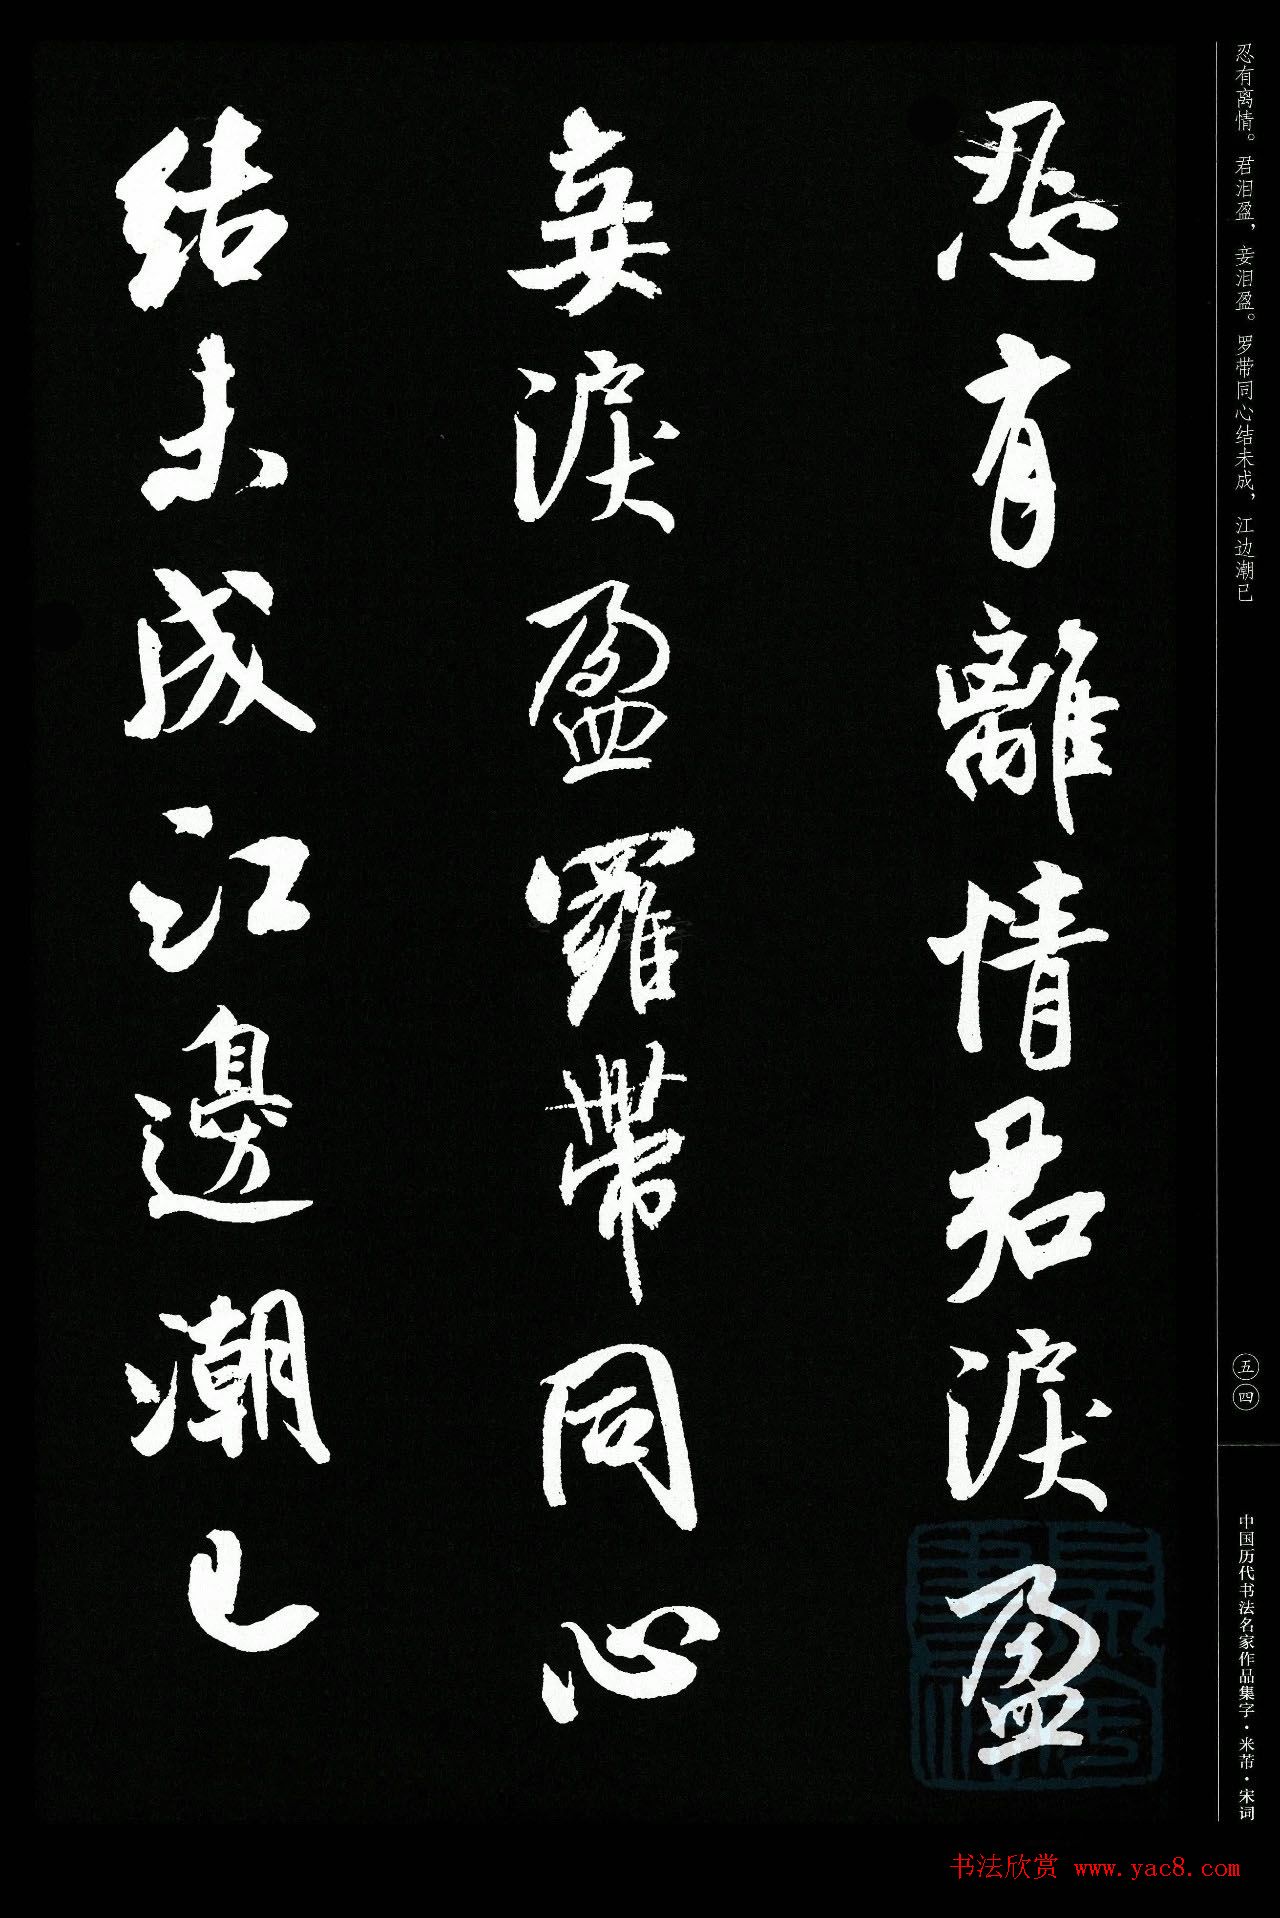 忍有離情君淚盈
妾淚盈羅帶同心
結未成江邊潮已
忍有离情。君泪盈，妾泪盈。罗带同心结未成，江边潮已
五四
中国历代书法名家作品集字·米芾·宋词
书法欣赏 www.yac8.com